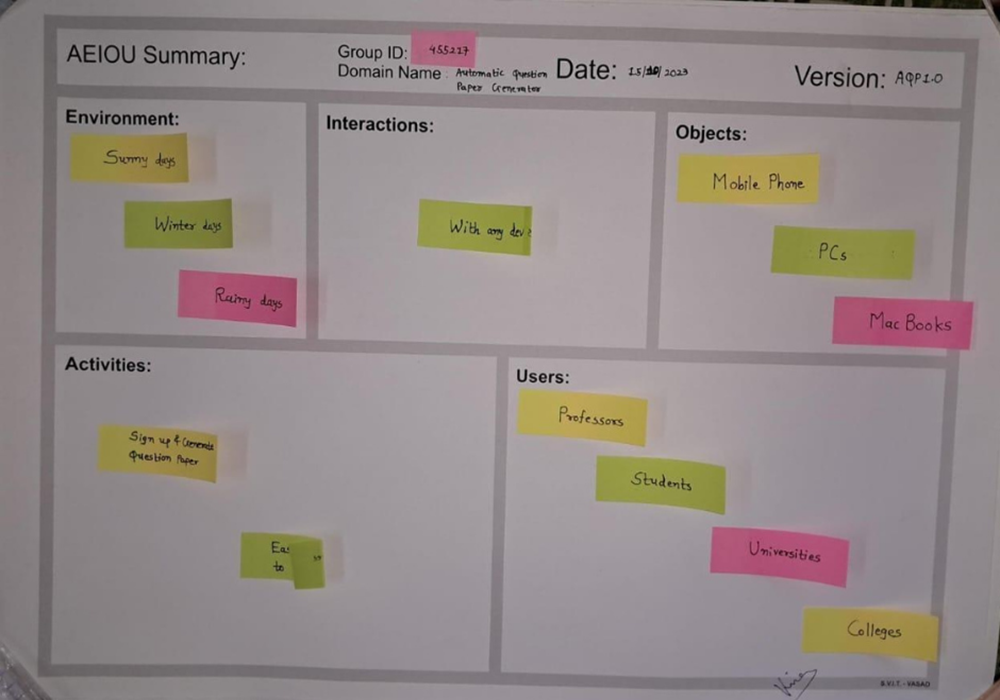 AEIOU Summary:
Group ID: 455227
Domain Name : Automatic Question
Paper Generator
Date: 15/10/2023
Version: AQP1.0
Environment:
Sunny days
Winter days
Rainy days
Interactions:
With any dev
Objects:
Mobile Phone
PCs
Mac Books
Activities:
Sign up & Generate
Question Paper
Eas
to
Users:
Professors
Students
Universities
Colleges
S.V.I.T. - VASAD